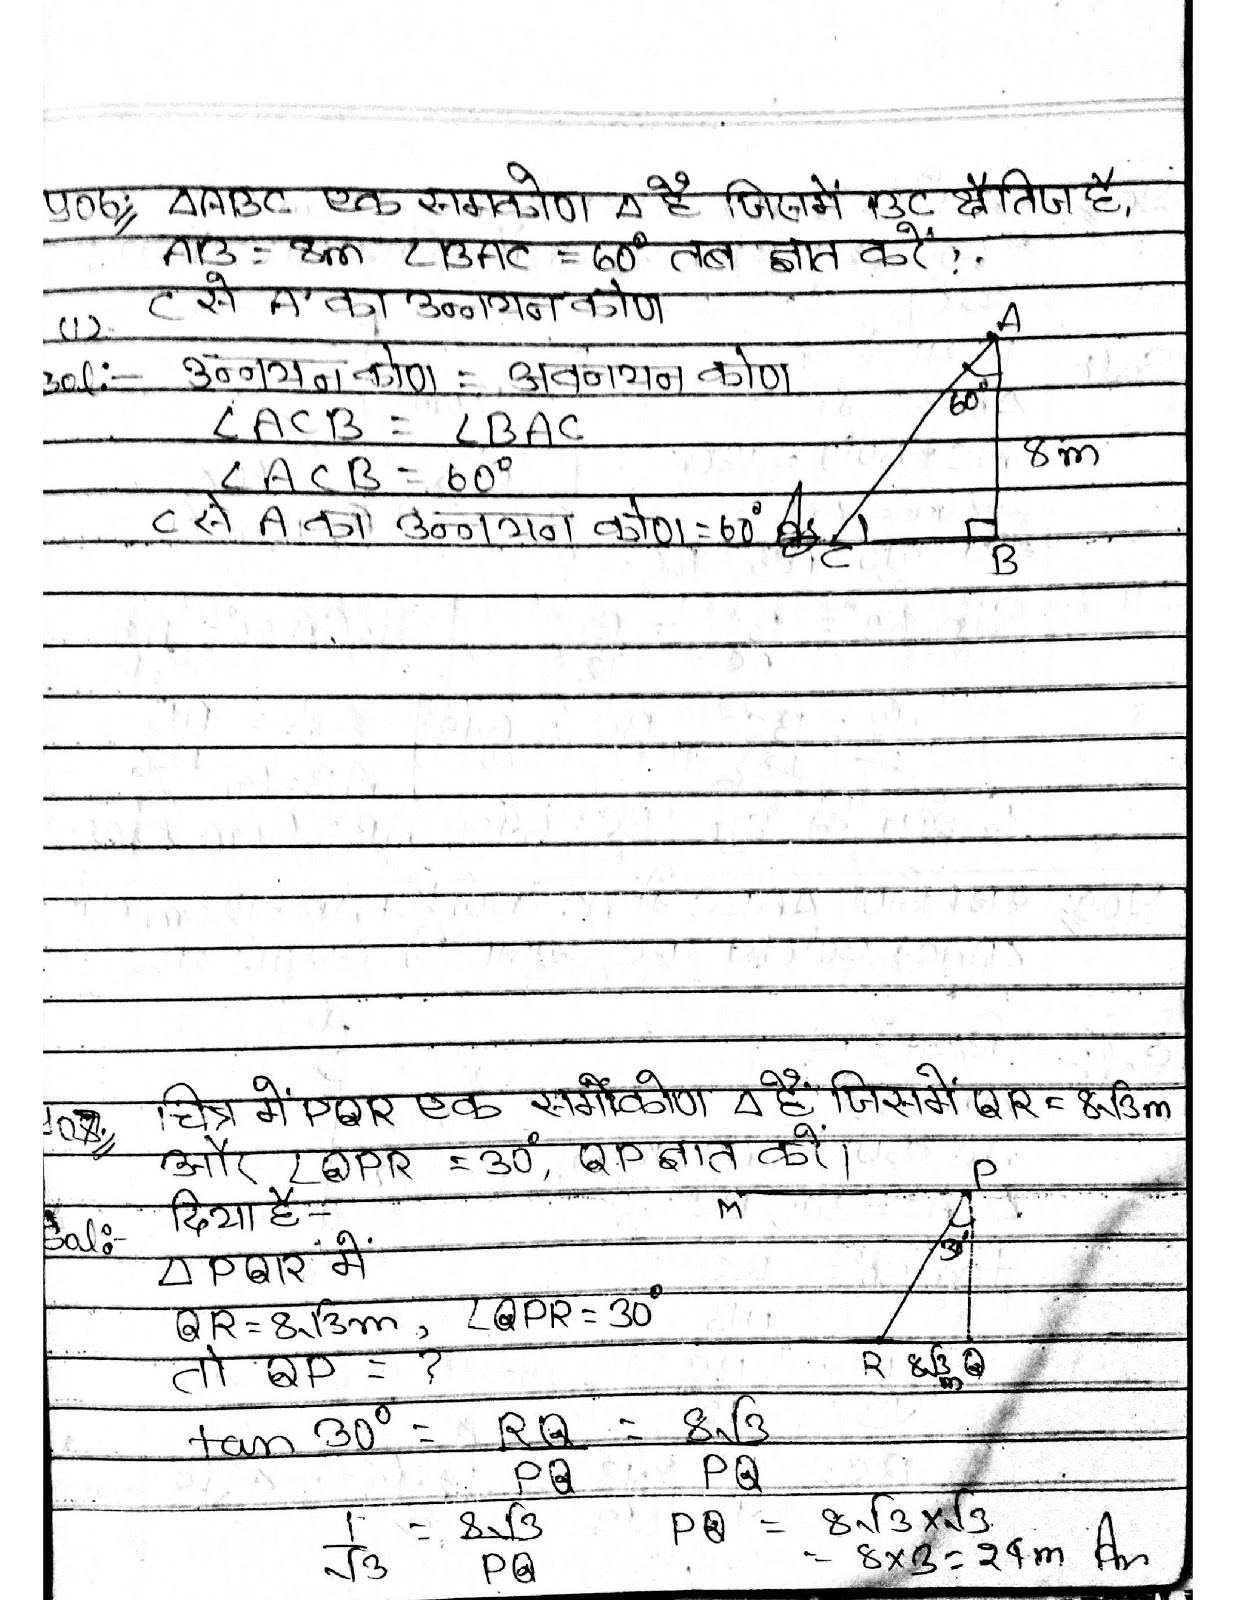 प्र06:// ΔABC एक समकोण Δ है जिसमें BC क्षैतिज है,
AB = 8m ∠BAC = 60° तब ज्ञात करें:.
(1) C से A का उन्नयन कोण
Sol:- उन्नयन कोण = अवनयन कोण
∠ACB = ∠BAC
∠ACB = 60°
C से A का उन्नयन कोण = 60°
A
60°
8m
C
B
चित्र में PQR एक समकोण Δ है जिसमें QR = 8√3m
और ∠QPR = 30°, QP ज्ञात करें।
Sol:- दिया है-
M
P
30°
Δ PQR में
QR = 8√3m, ∠QPR = 30°
तो QP = ?
R 8√3m Q
tan 30° = RQ/PQ = 8√3/PQ
1/√3 = 8√3/PQ PQ = 8√3×√3
= 8×3 = 24m An